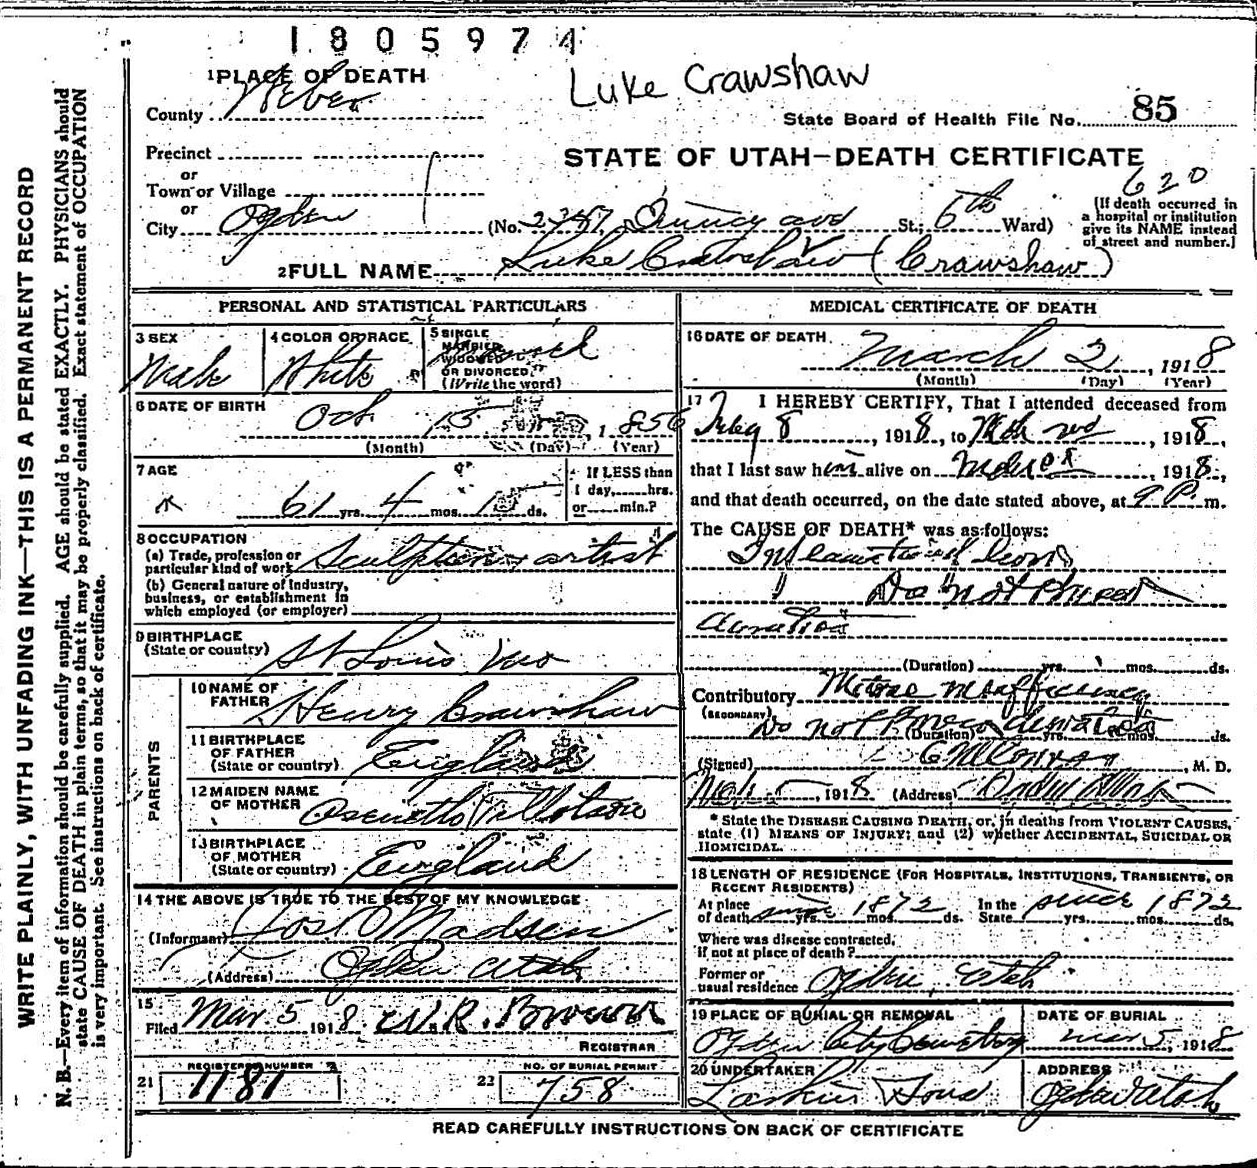 1805974
Luke Crawshaw
1 PLACE OF DEATH
County Weber
State Board of Health File No. 85
Precinct
or
Town or Village
or
City Ogden
STATE OF UTAH—DEATH CERTIFICATE
620
(No. Quincy ave St; 6th Ward)
(If death occurred in
a hospital or institution
give its NAME instead
of street and number.)
2 FULL NAME Luke (Crawshaw)
WRITE PLAINLY, WITH UNFADING INK—THIS IS A PERMANENT RECORD
N. B.—Every item of information should be carefully supplied. AGE should be stated EXACTLY. PHYSICIANS should
state CAUSE OF DEATH in plain terms, so that it may be properly classified. Exact statement of OCCUPATION
is very important. See instructions on back of certificate.
PERSONAL AND STATISTICAL PARTICULARS
3 SEX
Male
4 COLOR OR RACE
White
5 SINGLE
MARRIED
WIDOWED
OR DIVORCED
(Write the word)
6 DATE OF BIRTH
Oct 15, 1856
(Month) (Day) (Year)
7 AGE
61 yrs. 4 mos. 15 ds.
If LESS than
1 day, hrs.
or min.?
8 OCCUPATION
(a) Trade, profession or
particular kind of work Sculptor & artist
(b) General nature of Industry,
business, or establishment in
which employed (or employer)
9 BIRTHPLACE
(State or country) St Louis
PARENTS
10 NAME OF
FATHER Henry Crawshaw
11 BIRTHPLACE
OF FATHER
(State or country) England
12 MAIDEN NAME
OF MOTHER Tillotson
13 BIRTHPLACE
OF MOTHER
(State or country) England
14 THE ABOVE IS TRUE TO THE BEST OF MY KNOWLEDGE
(Informant) Jos. O Madsen
(Address) Ogden Utah
15
Filed Mar 5 1918 W. R. Brown
REGISTRAR
21 REGISTERED NUMBER
1181
22 NO. OF BURIAL PERMIT
758
MEDICAL CERTIFICATE OF DEATH
16 DATE OF DEATH
March 2, 1918
(Month) (Day) (Year)
17 I HEREBY CERTIFY, That I attended deceased from
8, 1918, to Mch 2nd, 1918,
that I last saw him alive on, 1918,
and that death occurred, on the date stated above, at 9 P. m.
The CAUSE OF DEATH* was as follows:
Do not
duration
(Duration) yrs. mos. ds.
Contributory Mitral insufficiency
(SECONDARY)
Do not duration
(Duration) yrs. mos. ds.
(Signed) E M Conroy, M. D.
1918 (Address)
* State the DISEASE CAUSING DEATH, or, in deaths from VIOLENT CAUSES,
state (1) MEANS OF INJURY; and (2) whether ACCIDENTAL, SUICIDAL OR
HOMICIDAL.
18 LENGTH OF RESIDENCE (FOR HOSPITALS, INSTITUTIONS, TRANSIENTS, OR
RECENT RESIDENTS)
At place
of death since 1872 yrs. mos. ds.
In the
State since 1872 yrs. mos. ds.
Where was disease contracted,
if not at place of death?
Former or
usual residence Ogden, Utah
19 PLACE OF BURIAL OR REMOVAL
Ogden City Cemetery
DATE OF BURIAL
Mar 5, 1918
20 UNDERTAKER
Larkin & Sons
ADDRESS
Ogden Utah
READ CAREFULLY INSTRUCTIONS ON BACK OF CERTIFICATE